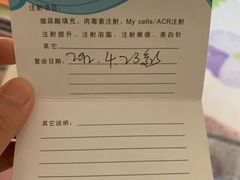 注射项目:
玻尿酸填充、肉毒素注射、My cells/ACR注射
注射提升、注射溶脂、注射瘢痕、美白针
其它
复诊日期:
其它说明: